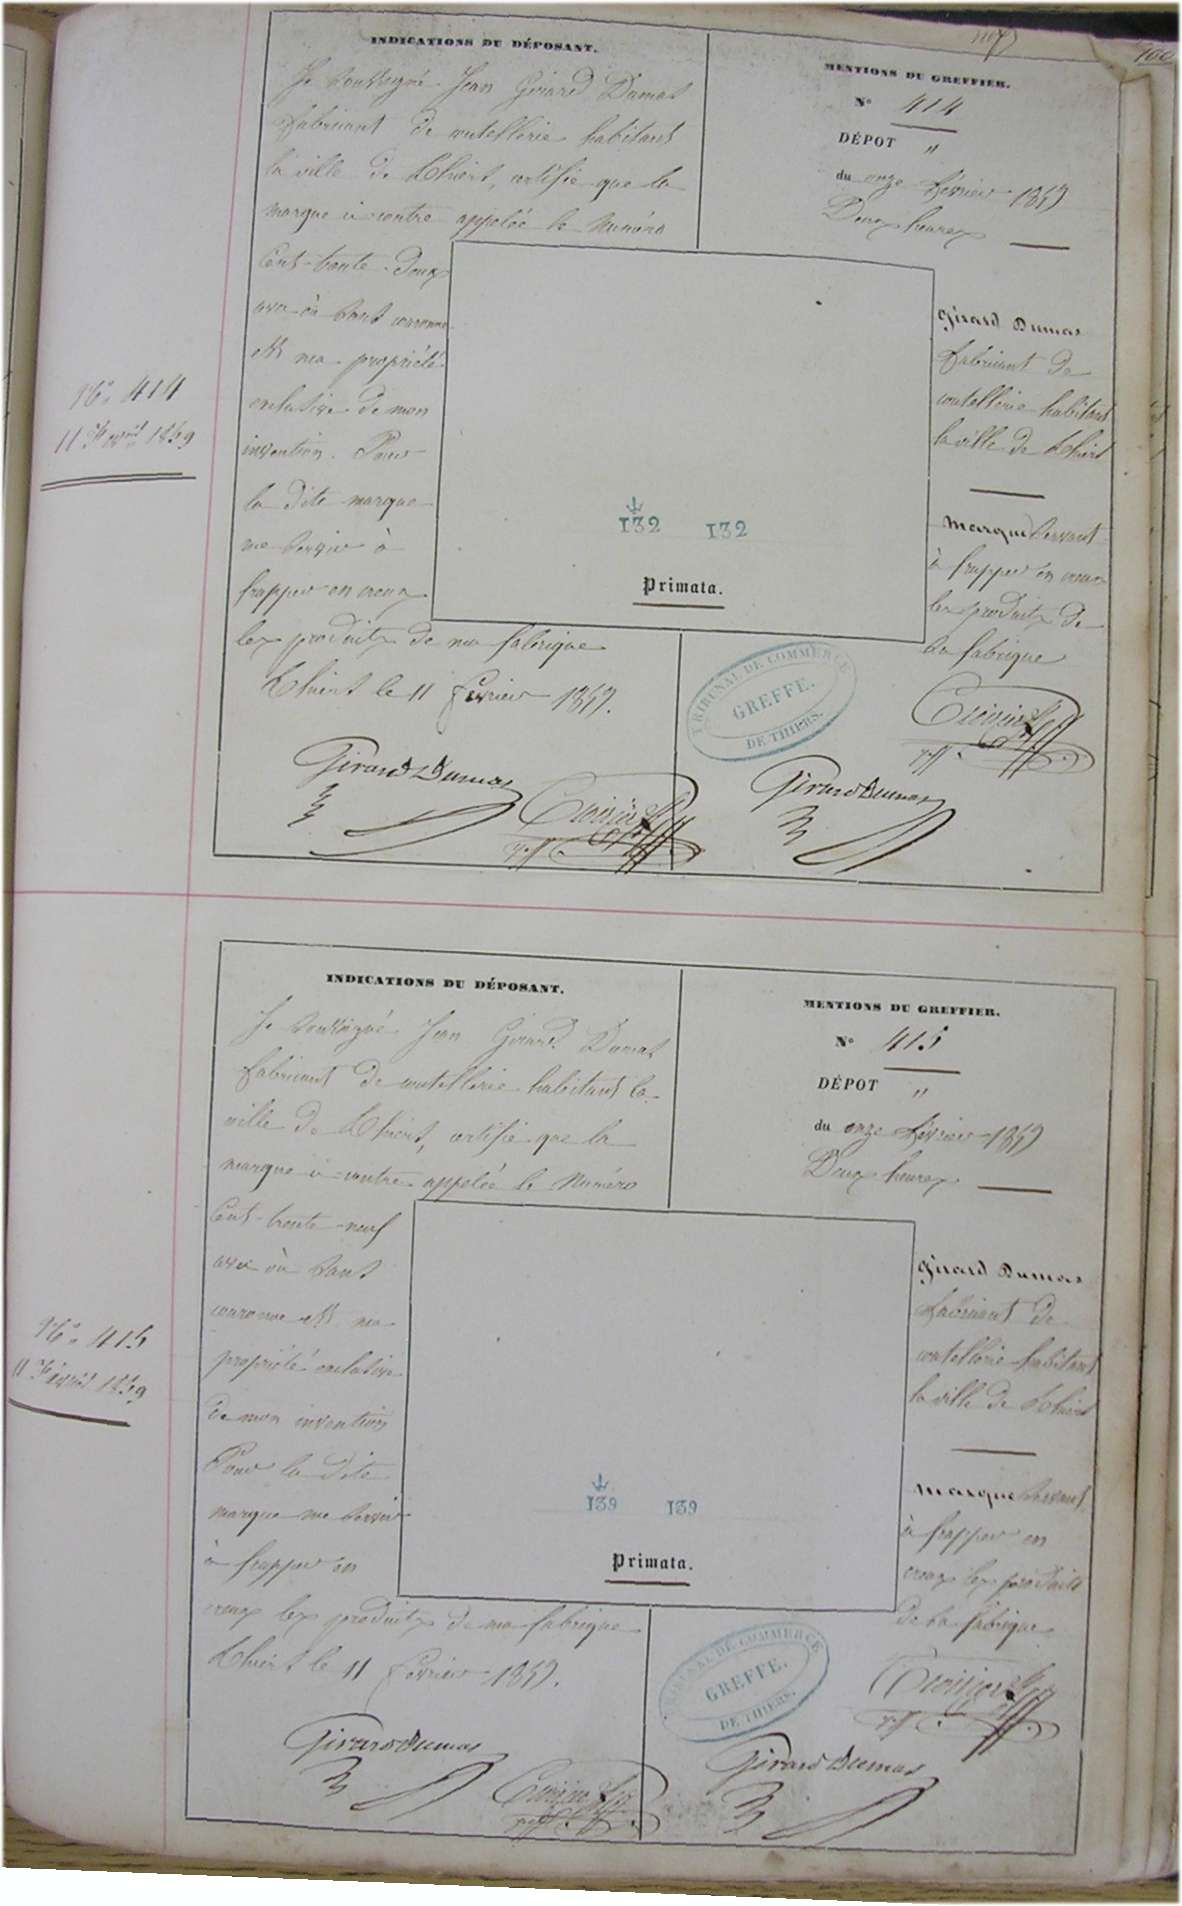 100
INDICATIONS DU DÉPOSANT.
Je soussigné Jean Girard Dumas
fabricant de coutellerie habitant
la ville de Thiers, certifie que la
marque ci contre appelée le Numéro
Cent-trente-deux
avec où sans couronne
est ma propriété
exclusive de mon
invention. Pour
la dite marque
me servir à
frapper en creux
les produits de ma fabrique
Thiers le 11 février 1859.
Girard Dumas
MENTIONS DU GREFFIER.
N° 414
DÉPOT "
du onze février 1859
Deux heures
Girard Dumas
fabricant de
coutellerie habitant
la ville de Thiers
Marque servant
à frapper en creux
les produits de
sa fabrique
Girard Dumas
132 132
Primata.
TRIBUNAL DE COMMERCE
GREFFE.
DE THIERS.
N° 414
11 Février 1859
INDICATIONS DU DÉPOSANT.
Je soussigné Jean Girard Dumas
fabricant de coutellerie habitant la
ville de Thiers, certifie que la
marque ci-contre appelée le Numéro
Cent-trente-neuf
avec où sans
couronne est ma
propriété exclusive
de mon invention
Pour la dite
marque me servir
à frapper en
creux les produits de ma fabrique
Thiers le 11 février 1859.
Girard Dumas
MENTIONS DU GREFFIER.
N° 415
DÉPOT "
du onze février 1859
Deux heures
Girard Dumas
fabricant de
coutellerie habitant
la ville de Thiers
Marque servant
à frapper en
creux les produits
de sa fabrique
Girard Dumas
139 139
Primata.
TRIBUNAL DE COMMERCE
GREFFE.
DE THIERS.
N° 415
11 Février 1859